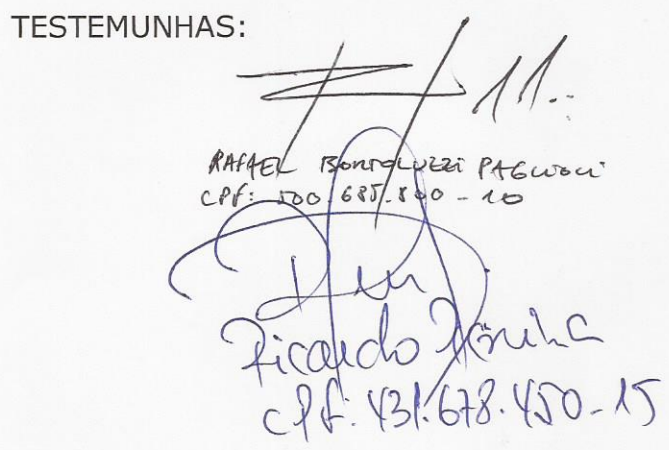 TESTEMUNHAS:
RAFAEL BORTOLUZZI
CPF: 500.685.800-10
Ricardo
CPF: 431.678.450-15